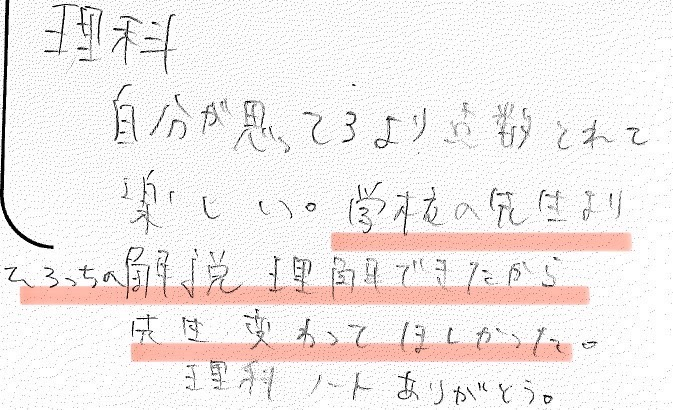 理科
自分が思ってるより点数とれて
楽しい。学校の先生より
ひろっちの解説理解できたから
先生変わってほしかった。
理科ノートありがとう。